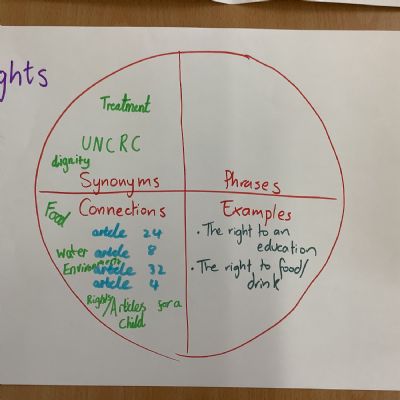 ghts
Treatment
UNCRC
dignity
Synonyms
Phrases
Food
Connections
article 24
Water article 8
article 32
article 4
Rights/Articles for a
Child
Examples
• The right to an
education
• The right to food/
drink